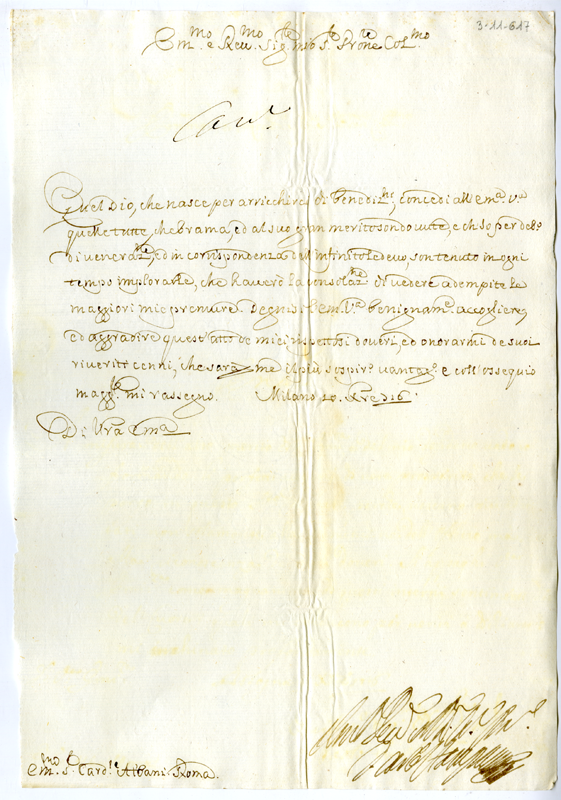 3-11-617
Em.mo e Rev.mo Sig.re mio S.re P.rone Col.mo
Quel Dio, che nasce per arricchirci di benediz.ni, concedi all'Em.a V.ra
quelle tutte, che brama, ed al suo gran merito son dovute, e ch'io per deb.o
di veneraz.ne, ed in corrispondenza dell'infinito le devo, son tenuto in ogni
tempo implorarle, che haverò la consolaz.ne di vedere adempite le
maggiori mie premure. Degnisi l'Em.a V.ra benignam.e accogliere,
ed aggradire quest'atto de miei rispettosi doveri, ed onorarmi de suoi
riveriti cenni, che sarà me il più sospir.o vantag.o e coll'ossequio
magg.re mi rassegno. Milano 10. Xre
Di V.ra Em.a
Em.mo S.r Card.le Albani Roma.